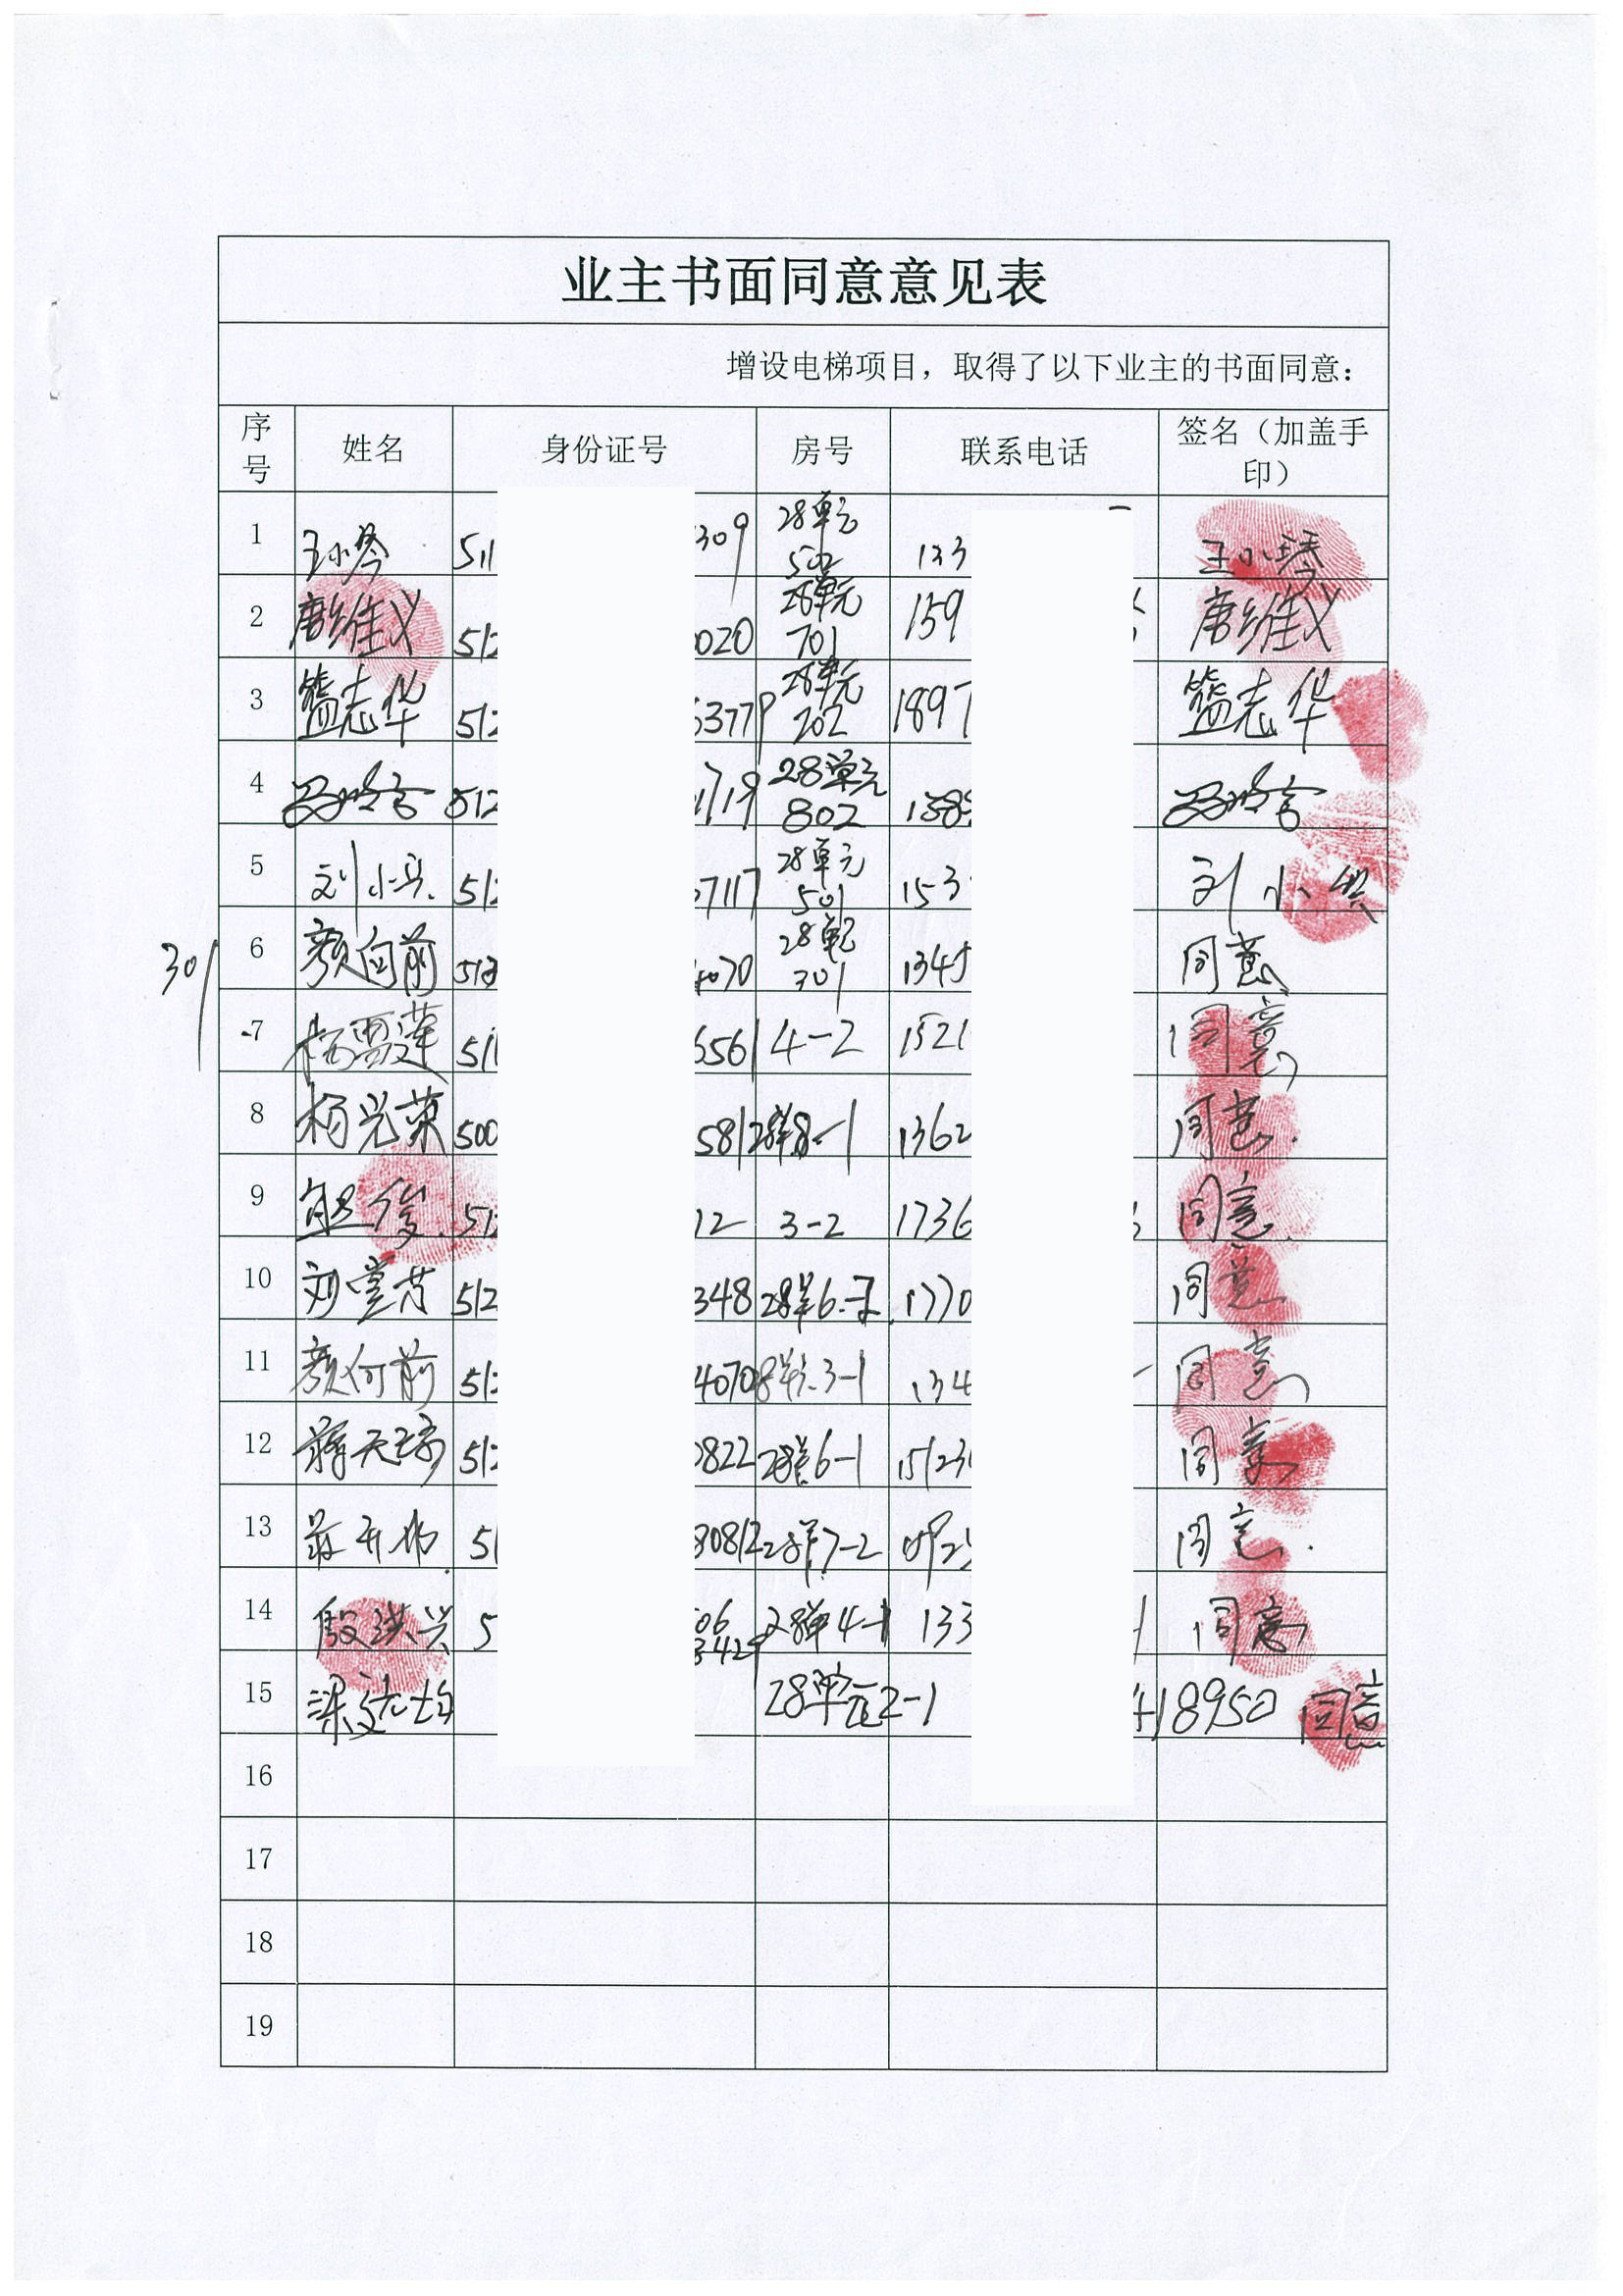 业主书面同意意见表
增设电梯项目，取得了以下业主的书面同意：
序号 姓名 身份证号 房号 联系电话 签名（加盖手印）
1 王小琴 511 309 28单元502 133 王小琴
2 唐维义 512 020 28单元701 159 唐维义
3 篮志华 512 3779 28单元202 1897 篮志华
4 512 1719 28单元802 158
5 刘小兵 512 7117 28单元501 153 刘小兵
301
6 颜向前 513 4070 28单元301 1345 同意
7 杨雪莲 511 6561 4-2 1521 同意
8 杨光荣 500 581 28单8-1 1362 同意
9 熊俊 512 12 3-2 1736 同意
10 刘 512 348 28单6- 1770 同意
11 颜向前 512 4070 8单元3-1 134 同意
12 蒋天 512 0822 28单6-1 15123 同意
13 51 30812 28单7-2 同意
14 殷洪兴 5 06 3429 28单4-1 133 同意
15 梁 28单元2-1 418950 同意
16
17
18
19